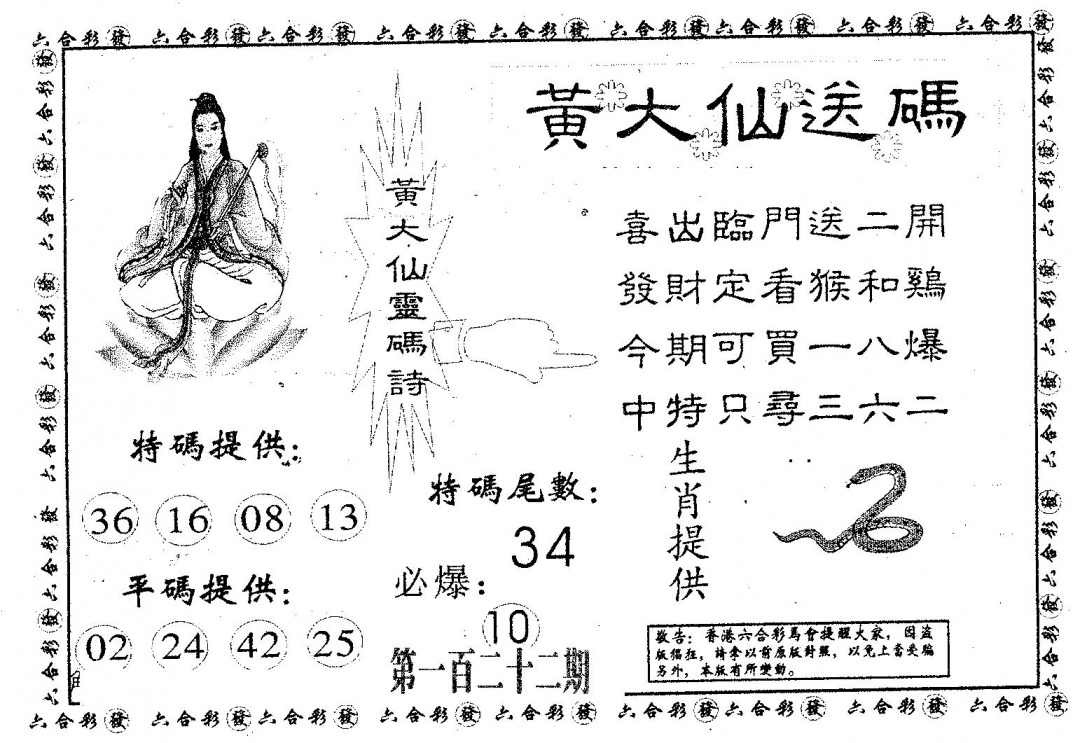 六合彩發 六合彩發六合彩發 六合彩發 六合彩發 六合彩發六合彩發 六合彩發 六合彩發
黃大仙送碼
黃大仙靈碼詩
喜出臨門送二開
發財定看猴和鷄
今期可買一八爆
中特只尋三六二
特碼提供：
36 16 08 13
平碼提供：
02 24 42 25
特碼尾數：
34
必爆：
10
第一百二十二期
生肖提供
敬告：香港六合彩馬會提醒大家，因盜
版猖狂，請拿以前原版對照，以免上當受騙
另外，本版有所變動。
六合彩發 六合彩發六合彩發 六合彩發 六合彩發 六合彩發六合彩發 六合彩發 六合彩發